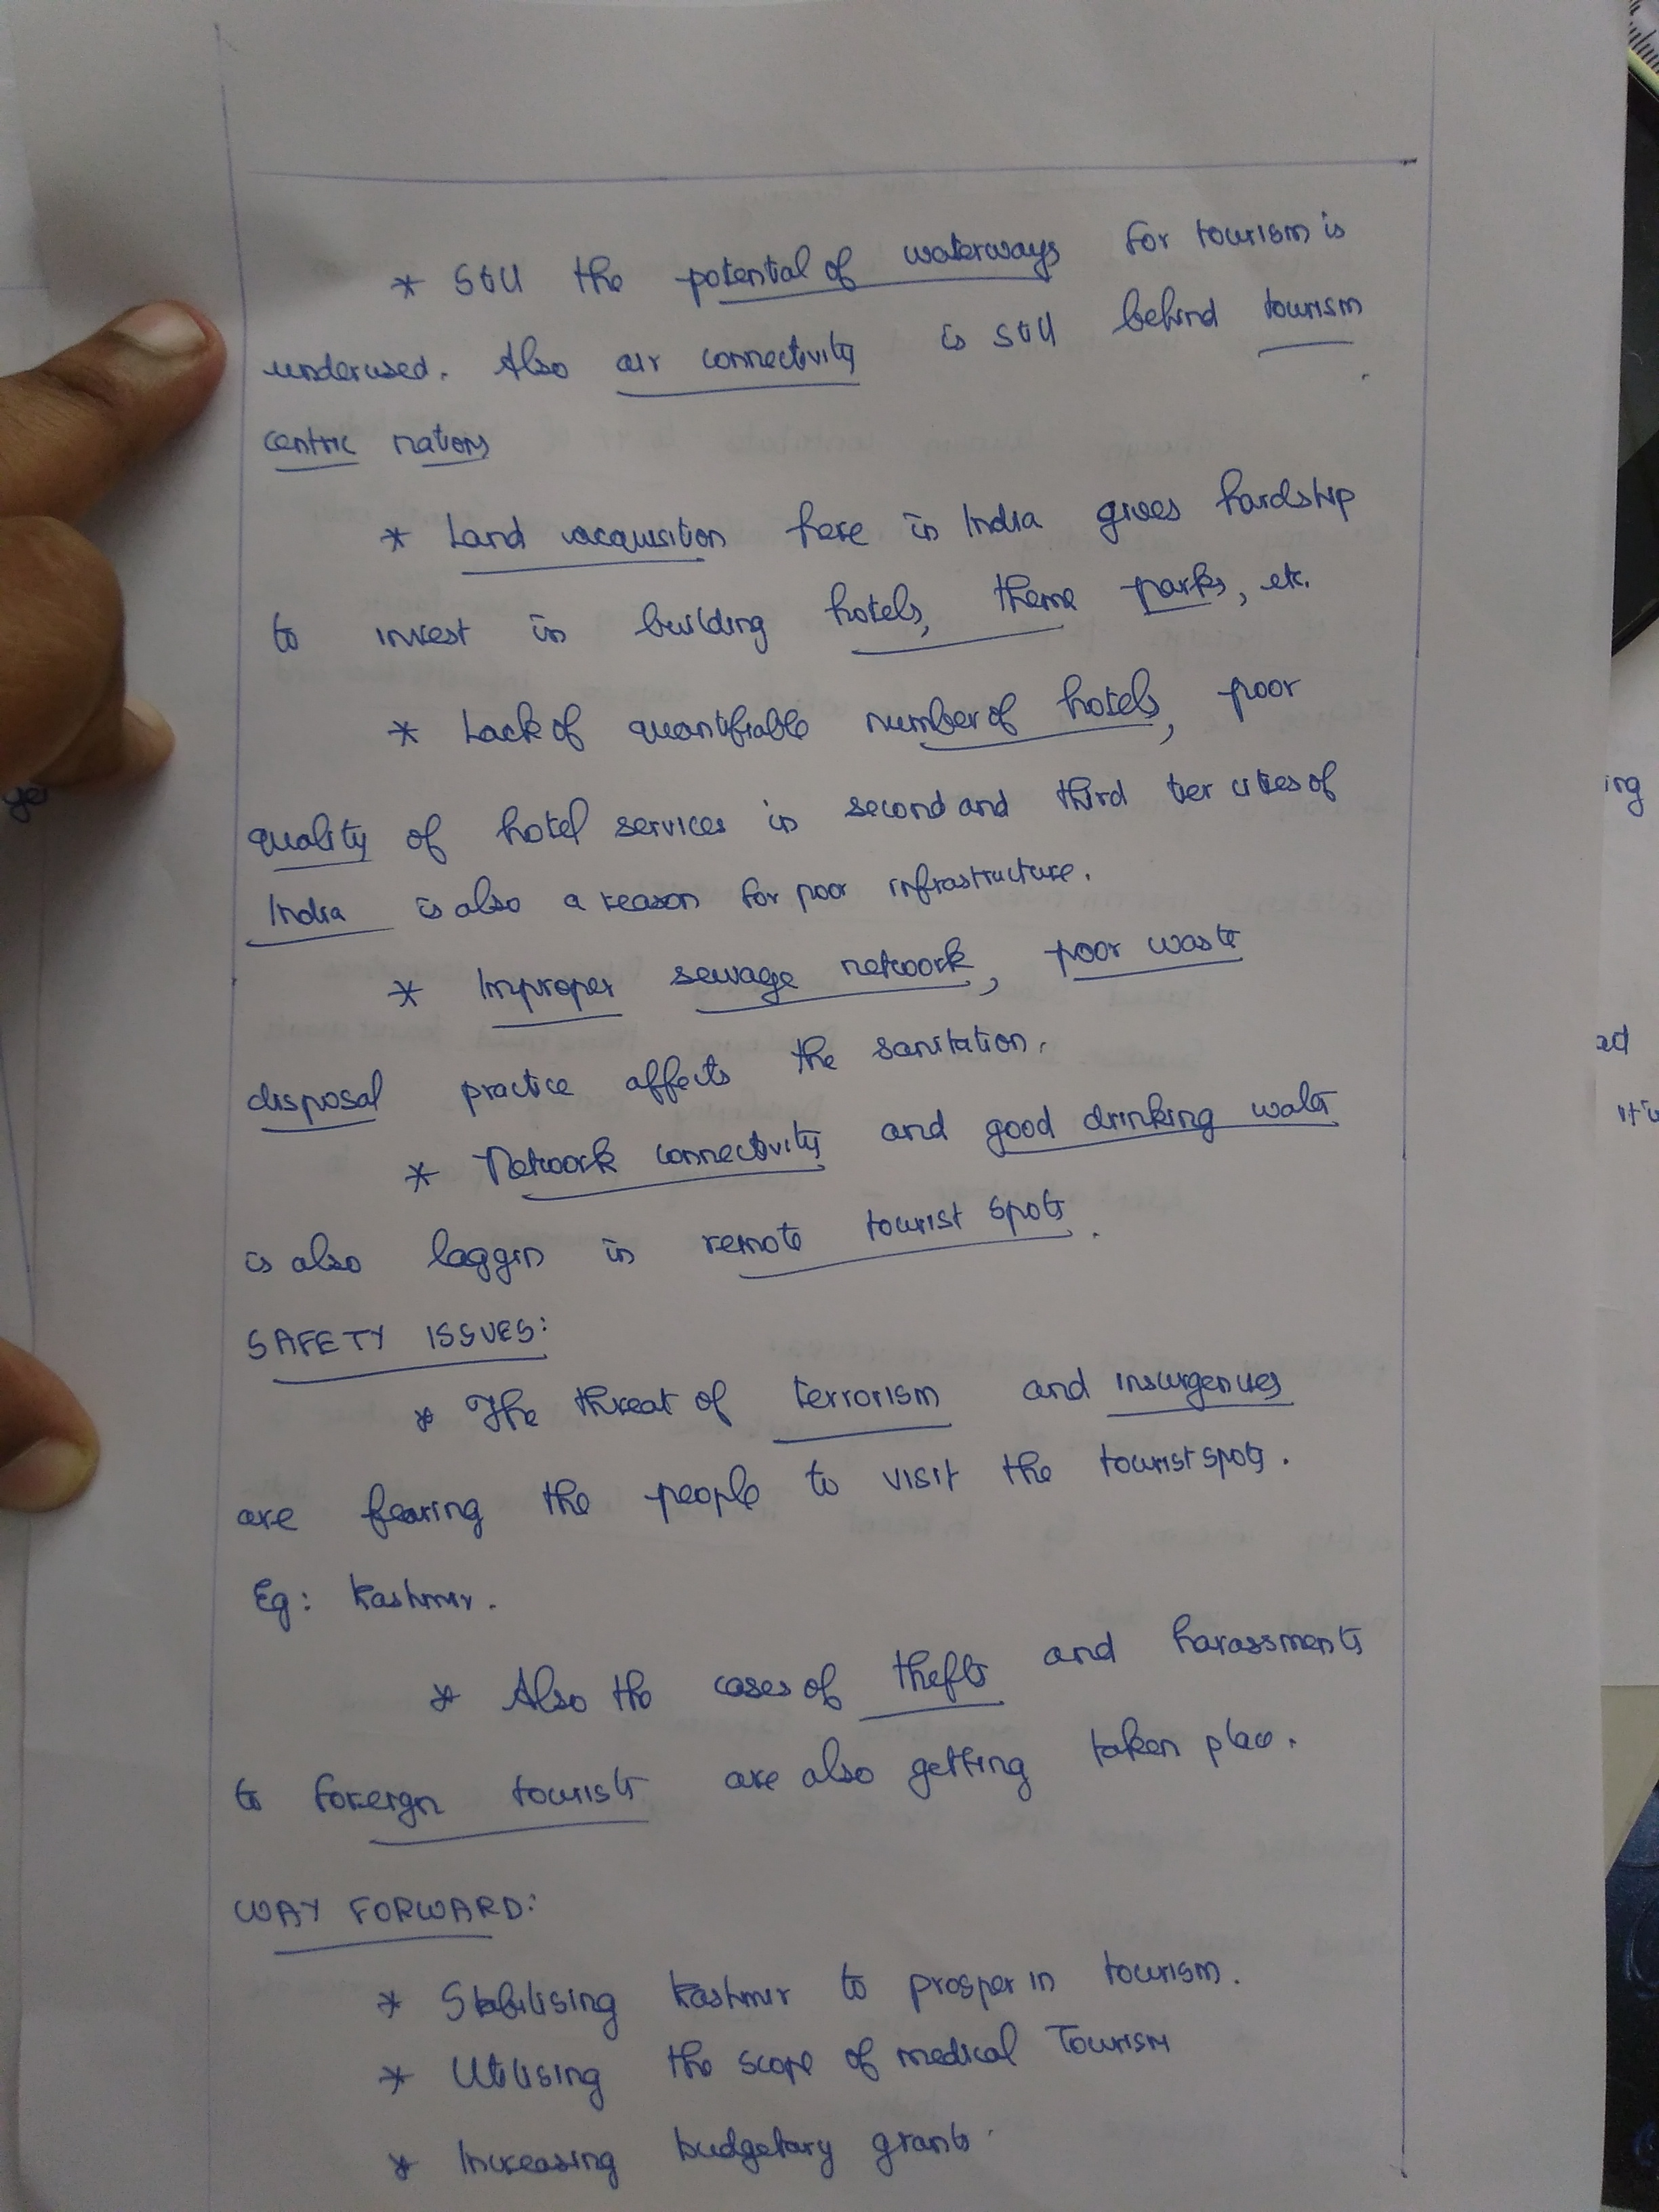 * Still the potential of waterways for tourism is
underused. Also air connectivity is still behind tourism
centric nations
* Land acquisition here in India gives hardship
to invest in building hotels, theme parks, etc.
* Lack of quantifiable number of hotels, poor
quality of hotel services in second and third tier cities of
India is also a reason for poor infrastructure.
* Improper sewage network, poor waste
disposal practice affects the sanitation.
* Network connectivity and good drinking water
is also laggin in remote tourist spots.
SAFETY ISSUES:
* The threat of terrorism and insurgencies
are fearing the people to visit the tourist spots.
Eg: Kashmir.
* Also the cases of thefts and harassments
to foreign tourists are also getting taken place.
WAY FORWARD:
* Stabilising Kashmir to prosper in tourism.
* Utilising the scope of medical Tourism
* Increasing budgetary grants.